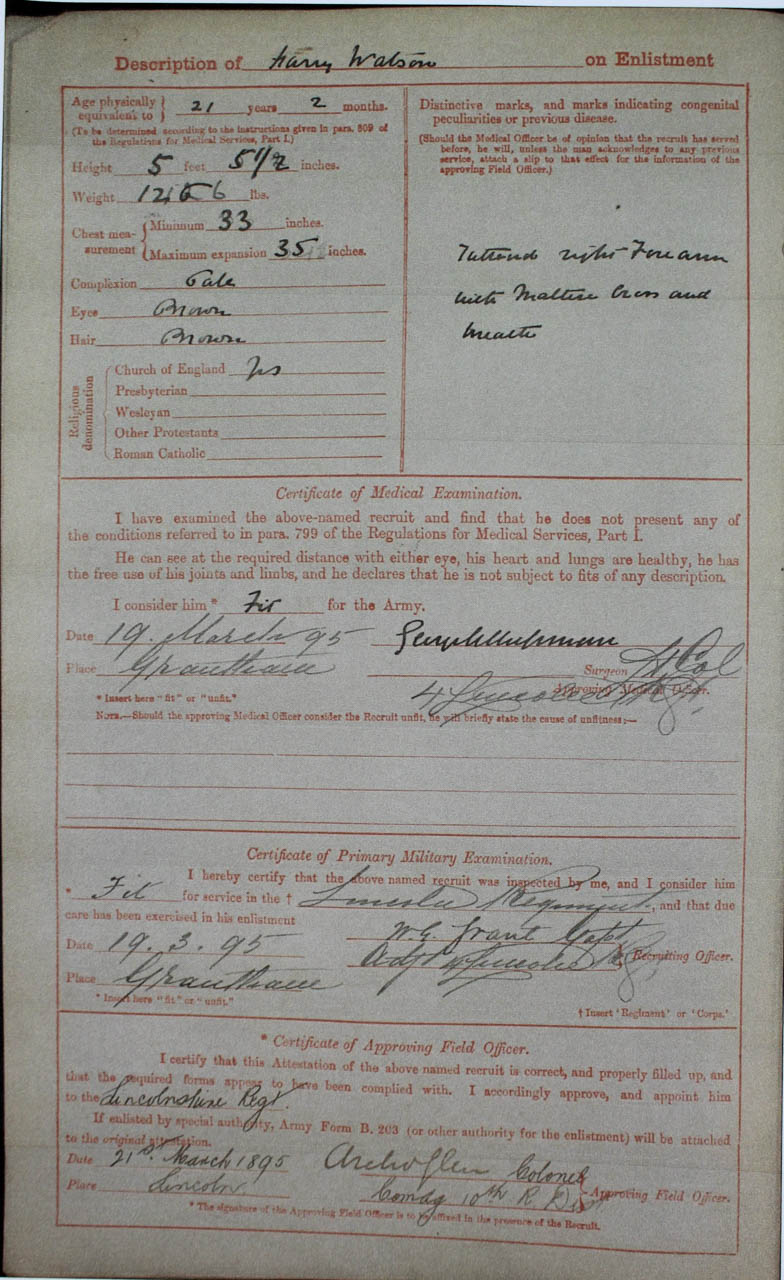 Description of Harry Watson on Enlistment
Age physically equivalent to } 21 years 2 months.
(To be determined according to the instructions given in para. 809 of the Regulations for Medical Services, Part I.)
Height 5 feet 5 1/2 inches.
Weight lbs.
Chest mea-surement { Minimum 33 inches.
Maximum expansion 35 inches.
Complexion Pale
Eyes Brown
Hair Brown
Religious denomination
Church of England Yes
Presbyterian
Wesleyan
Other Protestants
Roman Catholic
Distinctive marks, and marks indicating congenital
peculiarities or previous disease.
(Should the Medical Officer be of opinion that the recruit has served
before, he will, unless the man acknowledges to any previous
service, attach a slip to that effect for the information of the
approving Field Officer.)
Tattooed right Forearm
with Maltese Cross and
Wreath
Certificate of Medical Examination.
I have examined the above-named recruit and find that he does not present any of
the conditions referred to in para. 799 of the Regulations for Medical Services, Part I.
He can see at the required distance with either eye, his heart and lungs are healthy, he has
the free use of his joints and limbs, and he declares that he is not subject to fits of any description.
I consider him * Fit for the Army.
Date 19. March 95
Place Grantham Surgeon Lt Col
4 Lincoln Regt. Approving Medical Officer.
* Insert here "fit" or "unfit."
NOTE.—Should the approving Medical Officer consider the Recruit unfit, he will briefly state the cause of unfitness:—
Certificate of Primary Military Examination.
I hereby certify that the above named recruit was inspected by me, and I consider him
* Fit for service in the † Lincoln Regiment, and that due
care has been exercised in his enlistment
Date 19. 3. 95 W. G. Grant Capt
Adjt 4 Lincoln Rg. Recruiting Officer.
Place Grantham
* Insert here "fit" or "unfit."
† Insert 'Regiment' or 'Corps.'
* Certificate of Approving Field Officer.
I certify that this Attestation of the above named recruit is correct, and properly filled up, and
that the required forms appear to have been complied with. I accordingly approve, and appoint him
to the Lincolnshire Regt.
If enlisted by special authority, Army Form B. 203 (or other authority for the enlistment) will be attached
to the original attestation.
Date 21st March 1895 Colonel
Place Lincoln Comdg 10th R. Dist Approving Field Officer.
* The signature of the Approving Field Officer is to be affixed in the presence of the Recruit.